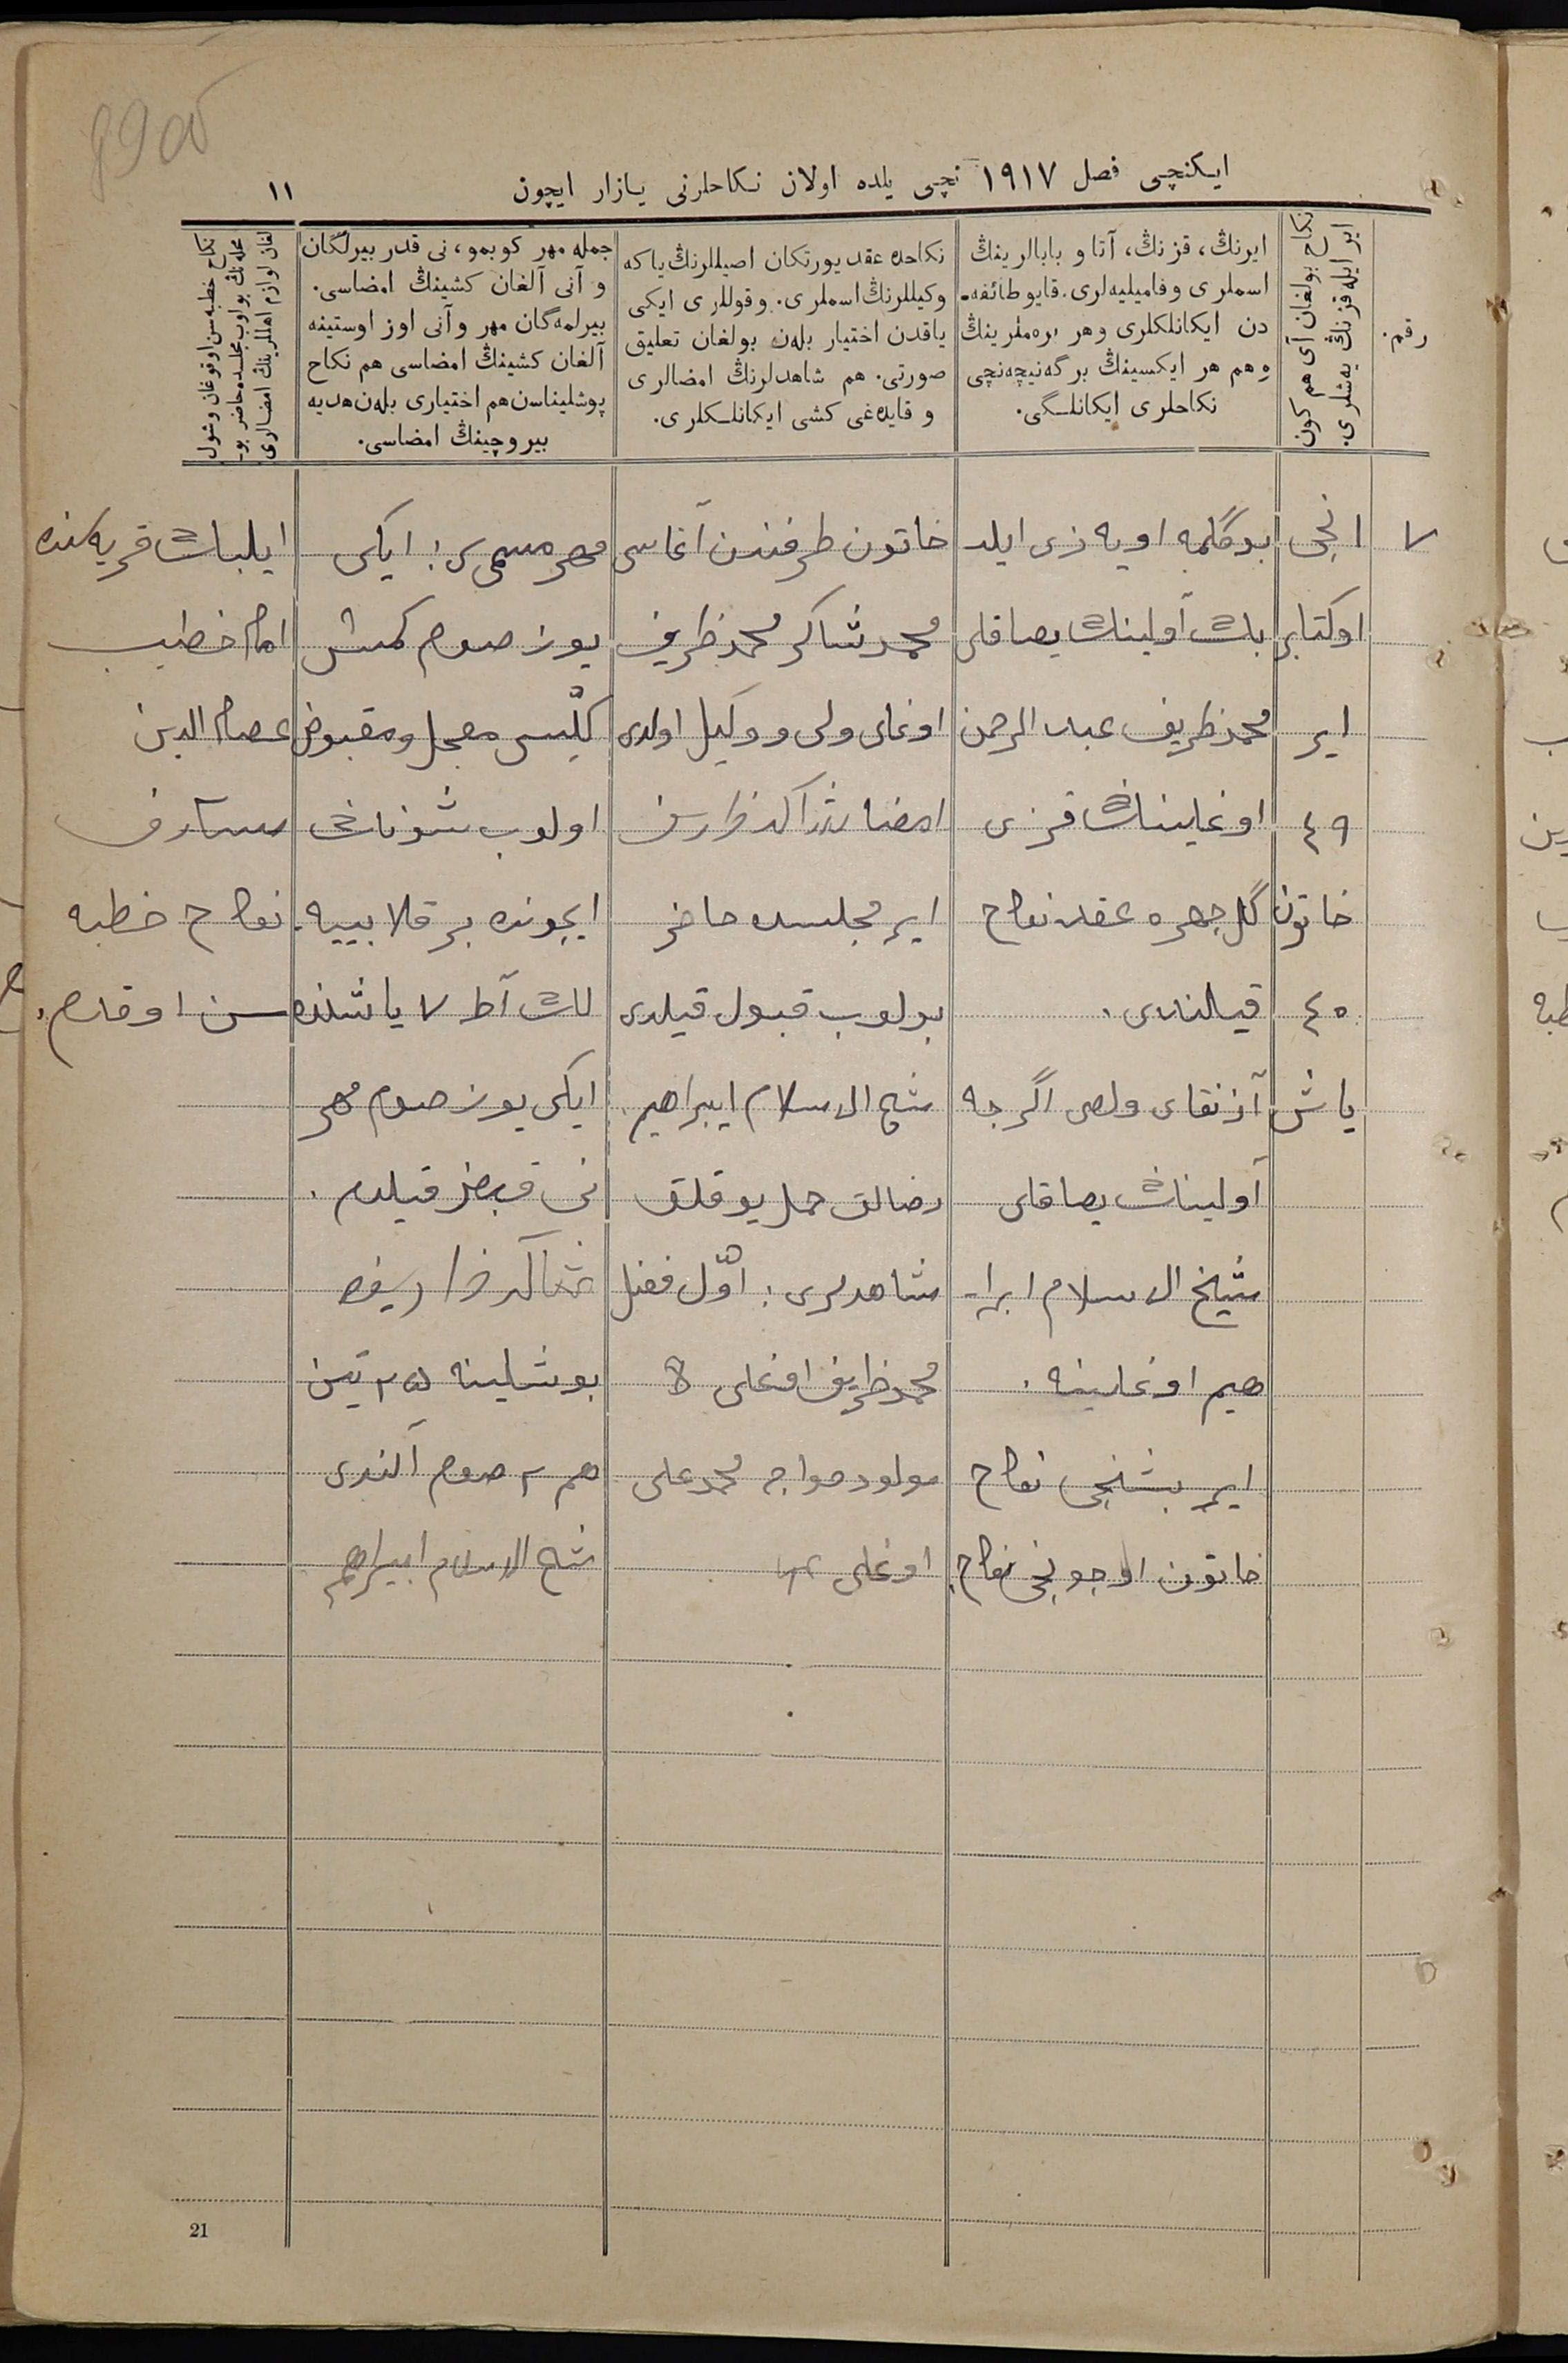 8906
ایکنچی فصل ۱۹۱۷ نچی یلده اولان نکاحلرنی یازار ایچون
۱۱
رقم.
نکاح بولغان آی هم کون
ایر ایله قزنڭ یه‌شلری.
ایرنڭ، قزنڭ، آتا و بابالرینڭ
اسملری و فامیلیه‌لری. قایو طائفه‌-
دن ایکانلکلری و هر
ه‌م هر ایکسینڭ برگه‌نیچه‌نچی
نکاحلری ایکانلـگی.
نکاحده عقد یورتکان اصیللرنڭ یا که
وکیللرنڭ اسملری. و قوللری ایکی
یاقدن اختیار بله‌ن بولغان تعلیق
صورتی. هم شاهدلرنڭ امضالری
و قایده‌غی کشی ایکانلـکلری.
جمله مهر کوبمو، نی قدر بیرلگان
و آنی آلغان کشینڭ امضاسی.
بیرلمه‌گان مهر و آنی اوز اوستینه
آلغان کشینڭ امضاسی هم نکاح
پوشلیناسن هم اختیاری بله‌ن هدیه
بیروچینڭ امضاسی.
نکاح خطبه‌سن اوقوغان و شول
محله‌نڭ بولوب مجلسده حاضر بو-
لغان لوازم اهللرینڭ امضالری
۷
۱نچی
اوکتابر
ایر
٤٩
خاتون
٤٠
یاش
بوگلمه اویه‌زی ایلـ
باش آولیناڭ یصاقلی
محمدظریف عبدالرحمن
اوغلیناڭ قزی
گل‌چهره عقد نکاح
قیلندی.
آزنقای ولصی اگرجه
آولیناڭ یصاقلی
شیخ الاسلام ابرا-
هیم اوغلینه.
ایر بشنجی نکاح
خاتون اوچونجی نکاح.
خاتون طرفندن آغاسی
محمدشاکر محمدظریف
اوغلی ولی و وکیل اولدی
امضا شاکر ظاریف
ایر مجلسده حاضر
بولوب قبول قیلدی
شیخ الاسلام ایبراهیم.
رضالق حمل یوقلق
شاهدلری: اوّل فضل
محمدظریف اوغلی
مولود خواجه محمدعلی
اوغلی
مهر مسمی‌سی: ایکی
یوز صوم کمش
کلّیسی معجل و مقبوض
اولوب شوناڭ
ایچونده بر قلا بییه.
لاڭ آط ۷ یاشنده
ایکی یوز صوم مهر
نی قبض قیلدم.
شاکر ظاریف
پوشلینه ۲۵ تین
هم ۲ صوم آلندی
شیخ الاسلام ایبراهیم
ایلباڭ قریه‌سنده
امام خطیب
عصام الدین
ستارف
نکاح خطبه
سن اوقدم.
21